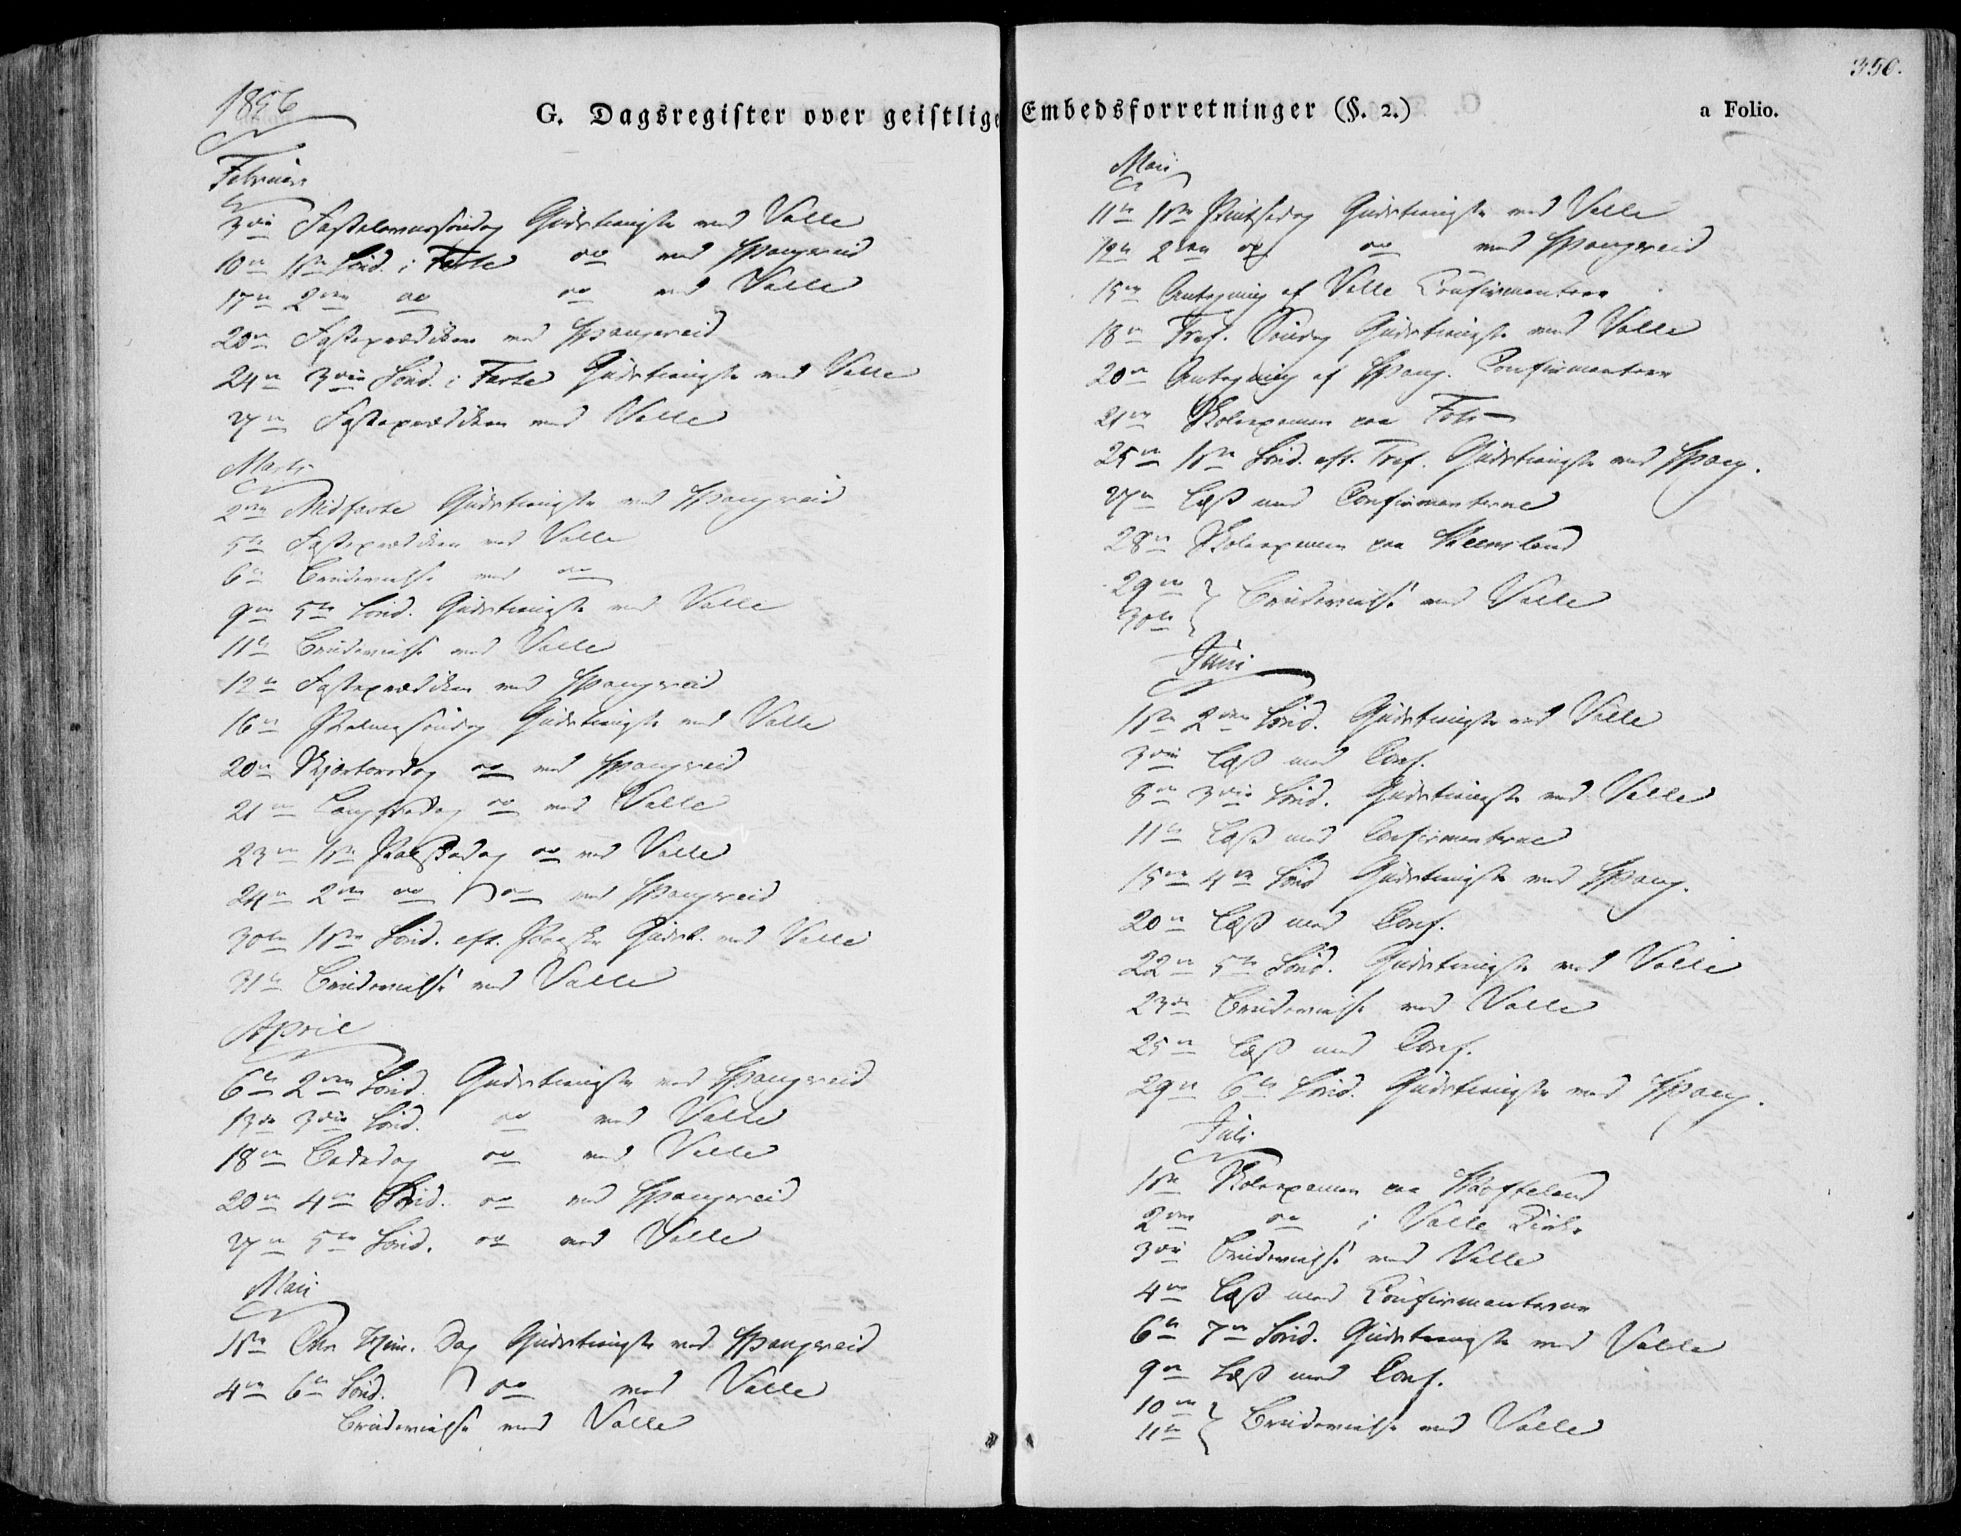 350.
G. Dagsregister over geistlige Embedsforretninger (§. 2.)
a Folio.
1856
Februar
3die Fastelavnssöndag Gudstieneste ved Valle
10de 1ste Sönd. i Faste do ved Spangereid
17de 2den do do ved Valle
20de Fasteprædiken ved Spangereid
24de 3die Sönd. i Faste Gudstieneste ved Valle
27de Fasteprædiken ved Valle
Marts
2den Midfaste Gudstieneste ved Spangereid
5te Fasteprædiken ved Valle
6te Brudevielse ved do
9de 5te Sönd. Gudstieneste ved Valle
11te Brudevielse ved Valle
12te Fasteprædiken ved Spangereid
16de Palmesöndag Gudstieneste ved Valle
20de Skjærtorsdag do ved Spangereid
21de Langfredag do ved Valle
23de 1ste Paaskedag do ved Valle
24de 2den do do ved Spangereid
30te 1ste Sönd. eft. Paaske Gudst. ved Valle
31te Brudevielse ved Valle
April
6te 2den Sönd. Gudstieneste ved Spangereid
13de 3die Sönd. do ved Valle
18de Bededag do ved Valle
20de 4de Sönd. do ved Spangereid
27de 5te Sönd. do ved Valle
Mai
1ste Chr. Him. Dag Gudstieneste ved Spangereid
4de 6te Sönd. do ved Valle
Brudevielse ved Valle
Mai
11te 1ste Pintsedag Gudstieneste ved Valle
12te 2den do do ved Spangereid
15de Antegning af Valle Confirmanter
18de Tref. Söndag Gudstieneste ved Valle
20de Antegning af Spang. Confirmanter
21de Skoleexamen paa
25de 1ste Sönd. eft. Tref. Gudstieneste ved Spang.
27de Læst med Confirmanterne
28de Skoleexamen paa
29de
30te } Brudevielse ved Valle
Juni
1ste 2den Sönd. Gudstieneste ved Valle
3die Læst med Conf.
8de 3die Sönd. Gudstieneste ved Valle
11te Læst med Confirmanterne
15de 4de Sönd Gudstieneste ved Spang.
20de Læst med Conf.
22de 5te Sönd. Gudstieneste ved Valle
23de Brudevielse ved Valle
25de Læst med Conf.
29de 6te Sönd. Gudstieneste ved Spang.
Juli
1ste Skoleexamen paa
2den do i Valle Kirke
3die Brudevielse ved Valle
4de Læst med Confirmanterne
6te 7de Sönd. Gudstieneste ved Valle
9de Læst med Conf.
10de
11te } Brudevielse ved Valle